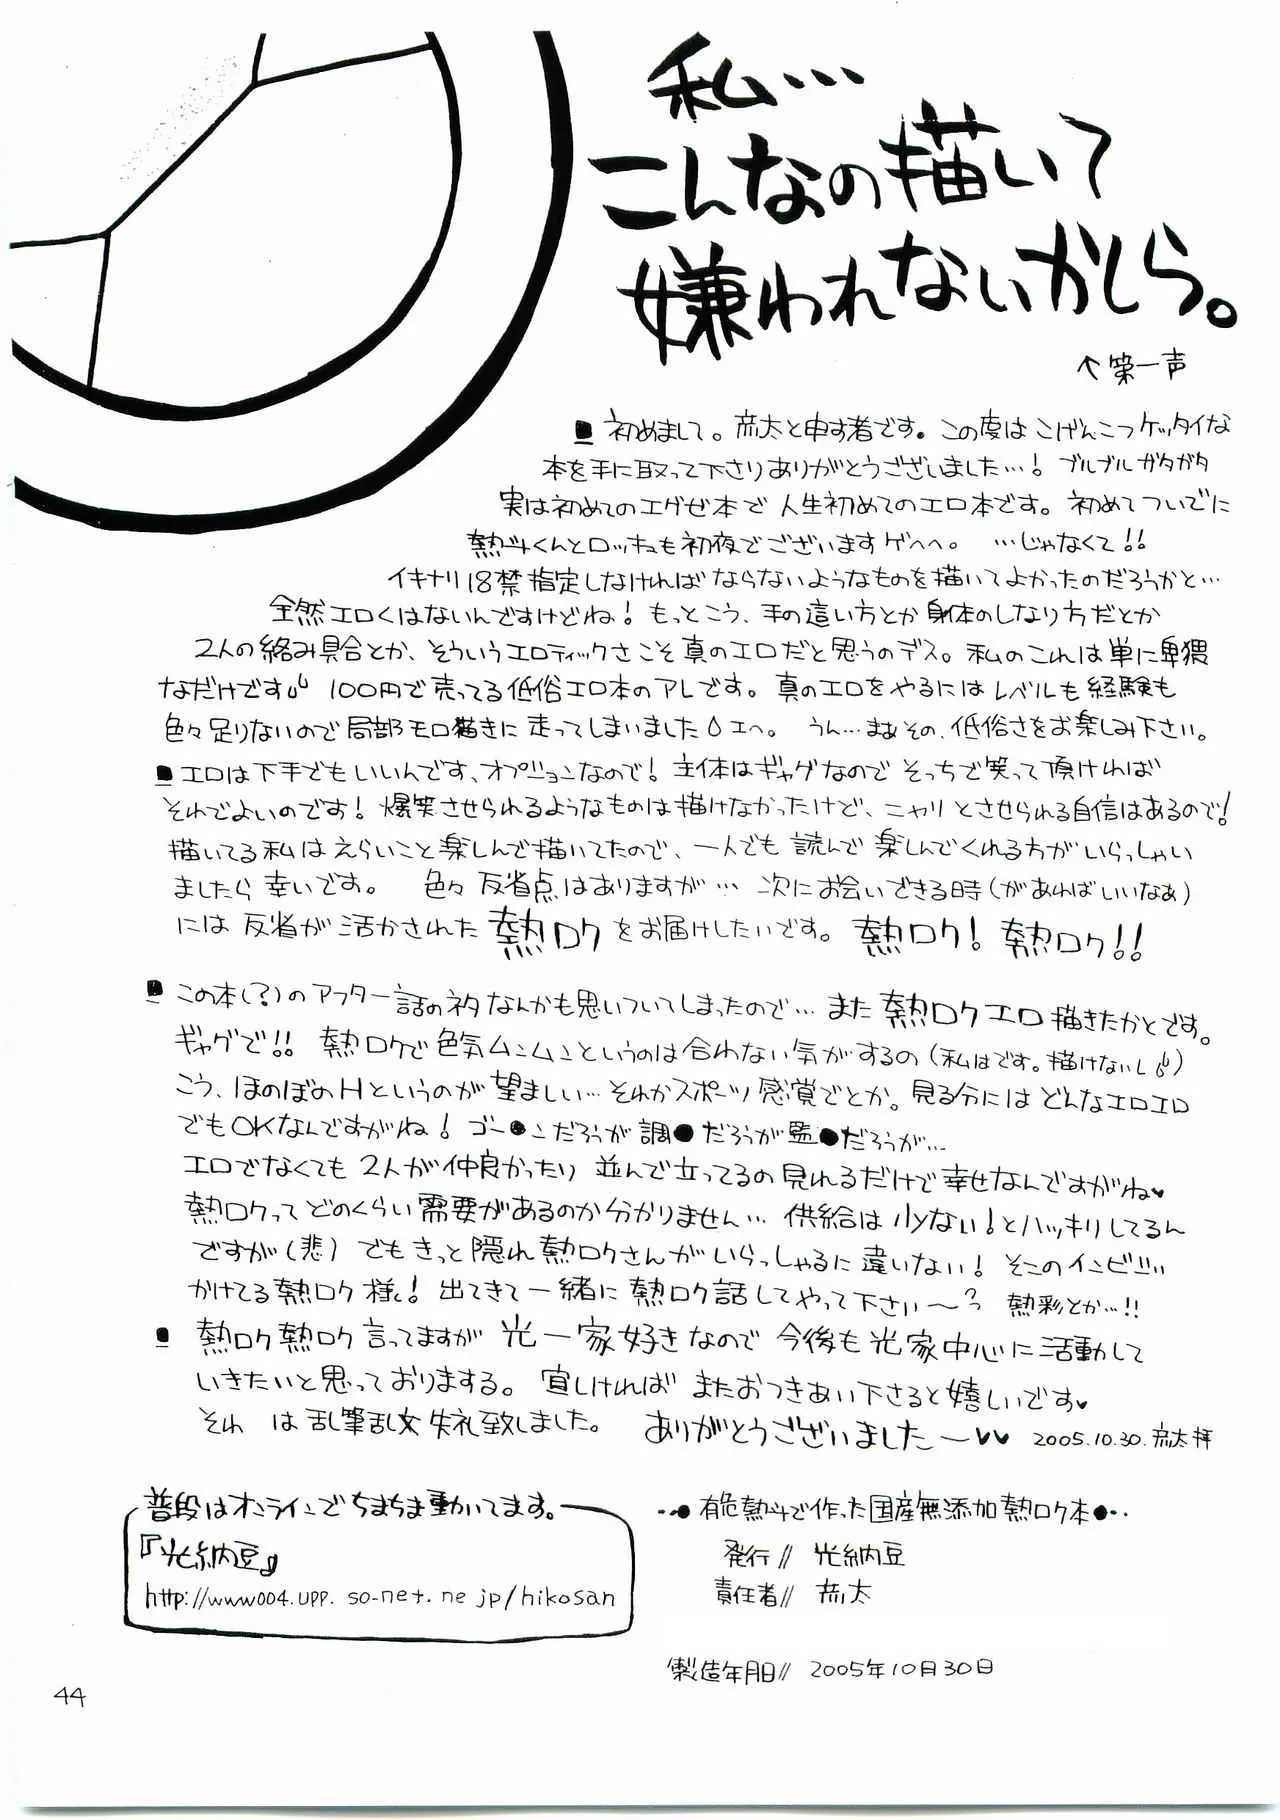 私…
こんなの描いて
嫌われないかしら。
↑第一声
■初めまして。彦太と申す者です。この度はこげんこつケッタイな
本を手に取って下さりありがとうございました…！ブルブルガタガタ
実は初めてのエグゼ本で人生初めてのエロ本です。初めてついでに
熱斗くんとロッキュも初夜でございますゲヘヘ。…じゃなくて!!
イキナリ18禁指定しなければならないようなものを描いてよかったのだろうかと…
全然エロくはないんですけどね！もっとこう、手の這い方とか身体のしなり方だとか
2人の絡み具合とか、そういうエロティックさこそ真のエロだと思うのデス。私のこれは単に卑猥
なだけです 100円で売ってる低俗エロ本のアレです。真のエロをやるにはレベルも経験も
色々足りないので局部モロ描きに走ってしまいましたエヘ。うん…まぁその、低俗さをお楽しみ下さい。
■エロは下手でもいいんです、オプションなので！主体はギャグなのでそっちで笑って頂ければ
それでよいのです！爆笑させられるようなものは描けなかったけど、ニヤリとさせられる自信はあるので！
描いてる私はえらいこと楽しんで描いてたので、一人でも読んで楽しんでくれる方がいらっしゃい
ましたら幸いです。 色々反省点はありますが…次にお会いできる時（があればいいなぁ）
には反省が活かされた熱ロクをお届けしたいです。熱ロク！熱ロク!!
■この本(?)のアフター話のネタなんかも思いついてしまったので…また熱ロクエロ描きたかとです。
ギャグで!! 熱ロクで色気ムンムンというのは合わない気がするの（私はです。描けないし）
こう、ほのぼのHというのが望ましい…それかスポーツ感覚でとか。見る分にはどんなエロエロ
でもOKなんですがね！ゴー●ンだろうが調●だろうが監●だろうが…
エロでなくても2人が仲良かったり並んで立ってるの見れるだけで幸せなんですがね♥
熱ロクってどのくらい需要があるのか分かりません…供給は少ない！とハッキリしてるん
ですが（悲）でもきっと隠れ熱ロクさんがいらっしゃるに違いない！そこのインビジ
かけてる熱ロク様！出てきて一緒に熱ロク話してやって下さい〜? 熱彩とか…!!
■熱ロク熱ロク言ってますが光一家好きなので今後も光家中心に活動して
いきたいと思っておりまする。宜しければまたおつきあい下さると嬉しいです♥
それ は乱筆乱文失礼致しました。 ありがとうございました〜♥♥ 2005.10.30.彦太拝
普段はオンラインでちまちま動いてます。
『光納豆』
http://www004.upp.so-net.ne.jp/hikosan
‥●有危熱斗で作った国産無添加熱ロク本●‥
発行// 光納豆
責任者// 彦太
製造年月日// 2005年10月30日
44